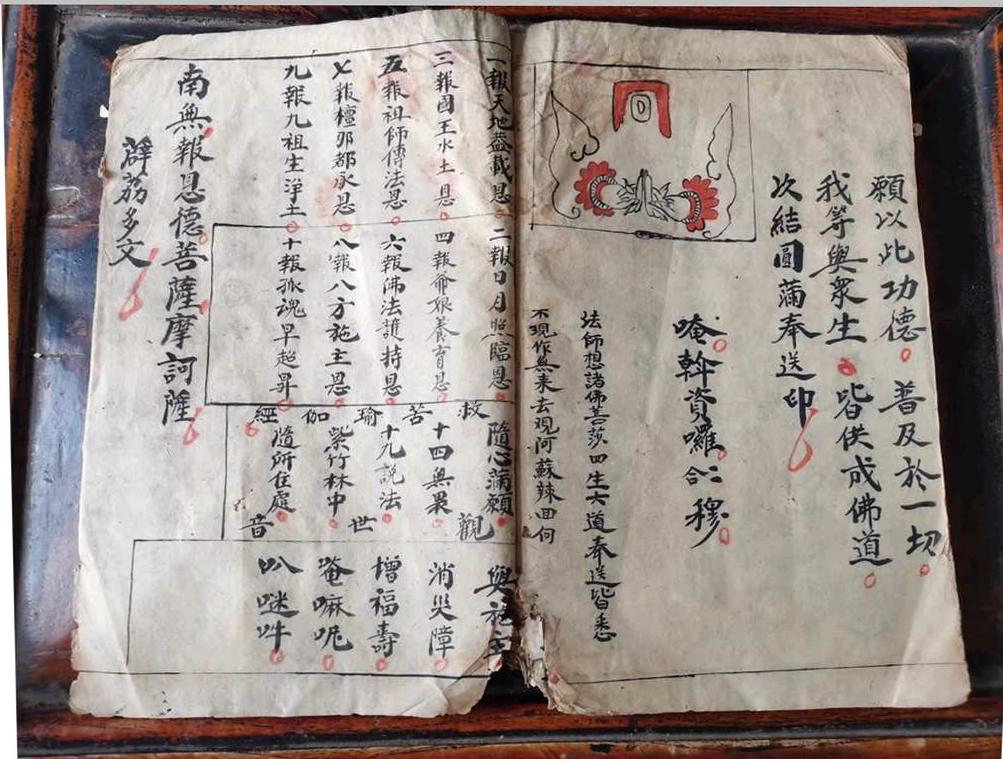 願以此功德 普及於一切
我等與衆生 皆供成佛道
次結圓滿奉送印
唵斡資囉合二穆
法師想諸佛菩莎四生六道奉送皆悉
不現作無来去現阿蘇辣回何
一報天地蓋載恩 二報日月照臨恩
三報國王水土恩 四報爺娘養育恩
五報祖師傳法恩 六報佛法護持恩
七報檀那都承恩 八報八方施主恩
九報九祖生淨土 十報孤魂早超昇
救苦瑜伽經
隨心滿願 與施主
十四無畏 消災障
十九説法 增福壽
紫竹林中 唵嘛呢
隨所住處 叭咪吽
觀世音
南無報恩德菩薩摩訶薩
薜荔多文